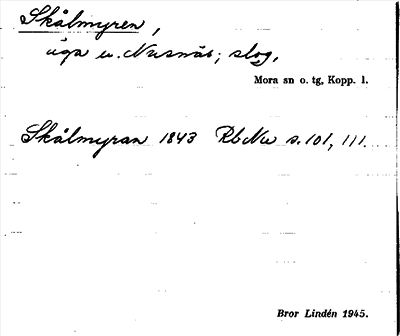 Skålmyren,
äga u. Nusnäs; slog.
Mora sn o. tg, Kopp. l.
Skålmyran 1843 RbNu s. 101, 111.
Bror Lindén 1945.